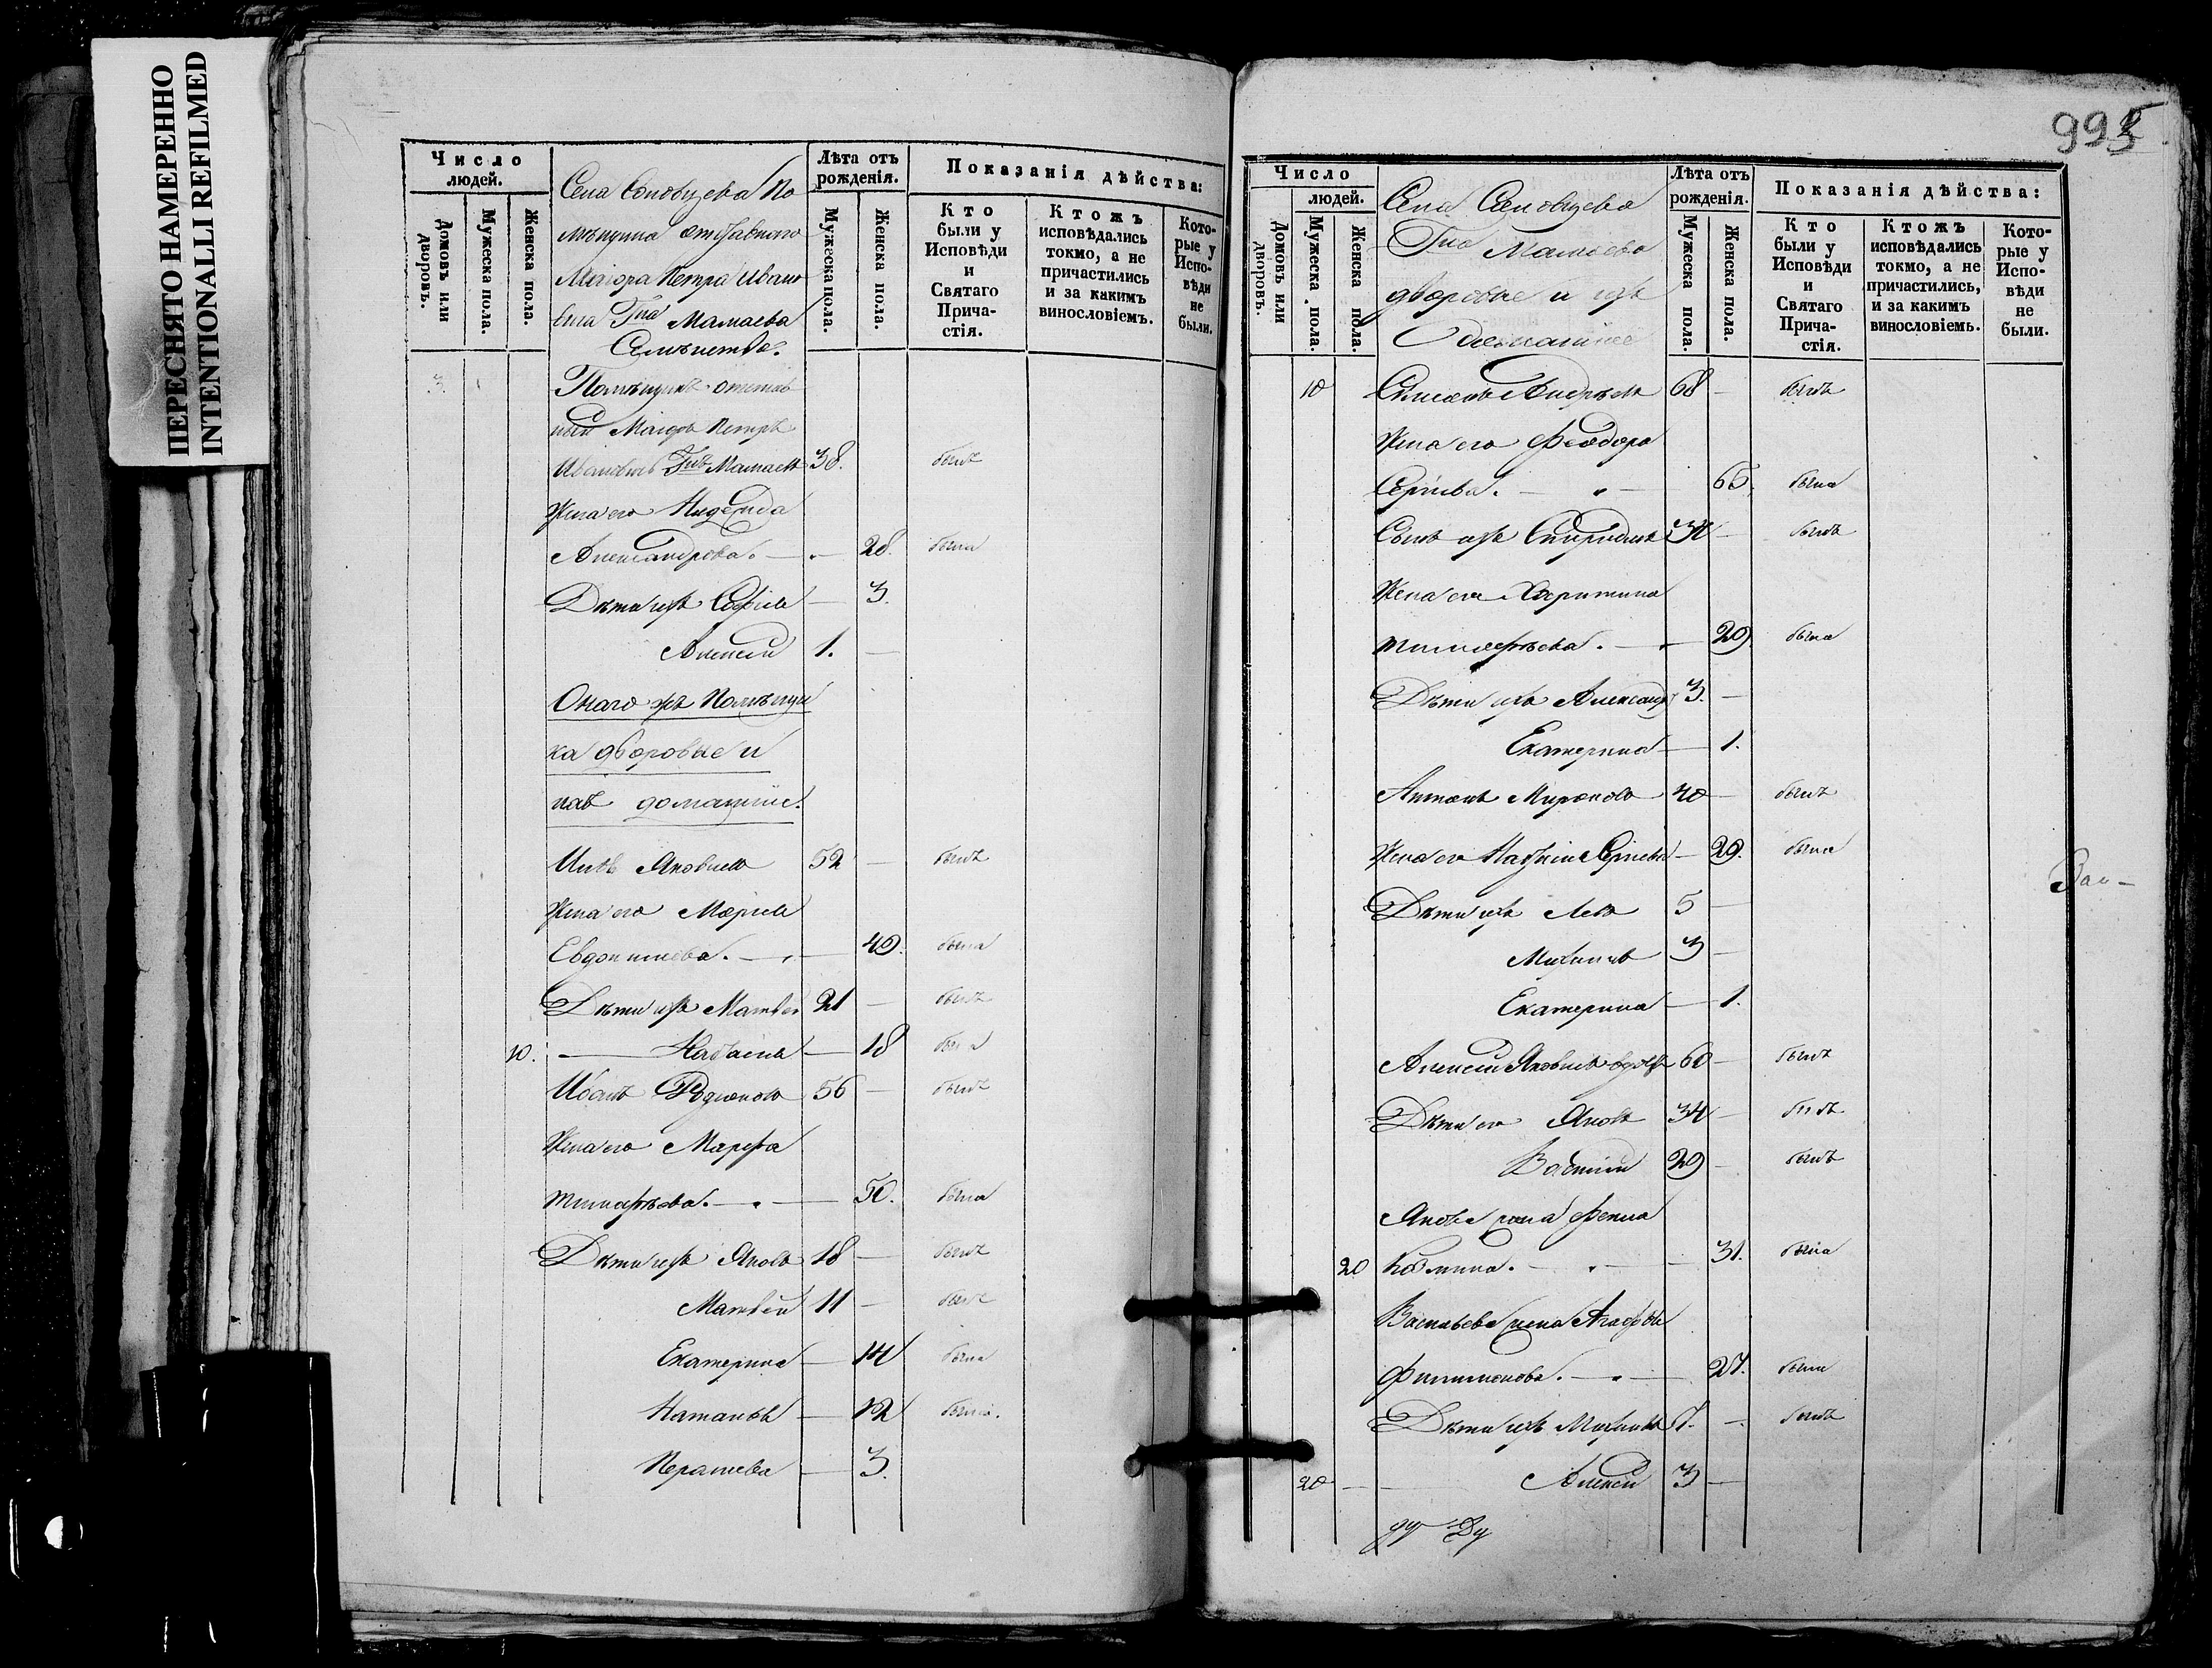 ПЕРЕСНЯТО НАМЕРЕННО
INTENTIONALLI REFILMED
Число людей.
Домовъ или дворовъ.
Мужеска пола.
Женска пола.
Села По
мѣщика отставнаго
Маіора Петра Ивано
вича Гна Мамаева
Семѣйство.
Лѣта отъ рожденія.
Мужеска пола.
Женска пола.
Показанія дѣйства:
Кто были у Исповѣди и Святаго Прича-стія.
Ктожъ исповѣдались токмо, а не причастились и за какимъ винословіемъ.
Кото-рые у Испо-вѣди не были.
3. 1 Помѣщикъ отстав
ный Маіоръ Петръ
Ивановичь Гнъ Мамаевъ 38. былъ
Жена его Надежда
Александрова. — 28. была
Дѣти ихъ Софія — 3.
Алексѣй 1. —
Онаго жъ Помѣщи
ка дворовые и
ихъ домашніе.
Яковлевъ 52 — былъ
Жена его Марія
Евдокимова. — 49. была
Дѣти ихъ Матвѣй 21 — былъ
10. — — 18 была
Иванъ Родіоновъ 56 — былъ
Жена его Марфа
Тимофѣева. — 50. была
Дѣти ихъ Яковъ 18 — былъ
Матвѣй 11 — былъ
Екатерина — 14 была
Наталья — 12 была.
— 3.
993
Число людей.
Домовъ или дворовъ.
Мужеска пола.
Женска пола.
Села
Гна Мамаева
дворовые и ихъ
домашніе
Лѣта отъ рожденія.
Мужеска пола.
Женска пола.
Показанія дѣйства:
Кто были у Исповѣди и Святаго Прича-стія.
Ктожъ исповѣдались токмо, а не причастились, и за какимъ винословіемъ.
Кото-рые у Испо-вѣди не были.
10 Симеонъ Андреевъ 68 — былъ
Жена его Феодора
Сергіева. — 65. была
Сынъ ихъ Спиридонъ 34 — былъ
Жена его Харитина
Тимофѣева. — 29 была
Дѣти ихъ Александръ 3. —
Екатерина — 1.
Антонъ Мироновъ 40 — былъ
Жена его Сергіева — 29. была
Дѣти ихъ Левъ 5 —
Михаилъ 3 —
Екатерина — 1.
Алексѣй Яковлевъ вдовъ 60 — былъ
Дѣти его Яковъ 34 — былъ
Василій 29 — былъ
Якова жена Фекла
20 Козмина. — 31. была
Васильева жена Агафья
Филимонова. — 27. была
Дѣти ихъ Михаилъ 7. — былъ
20 — Алексѣй 3 —